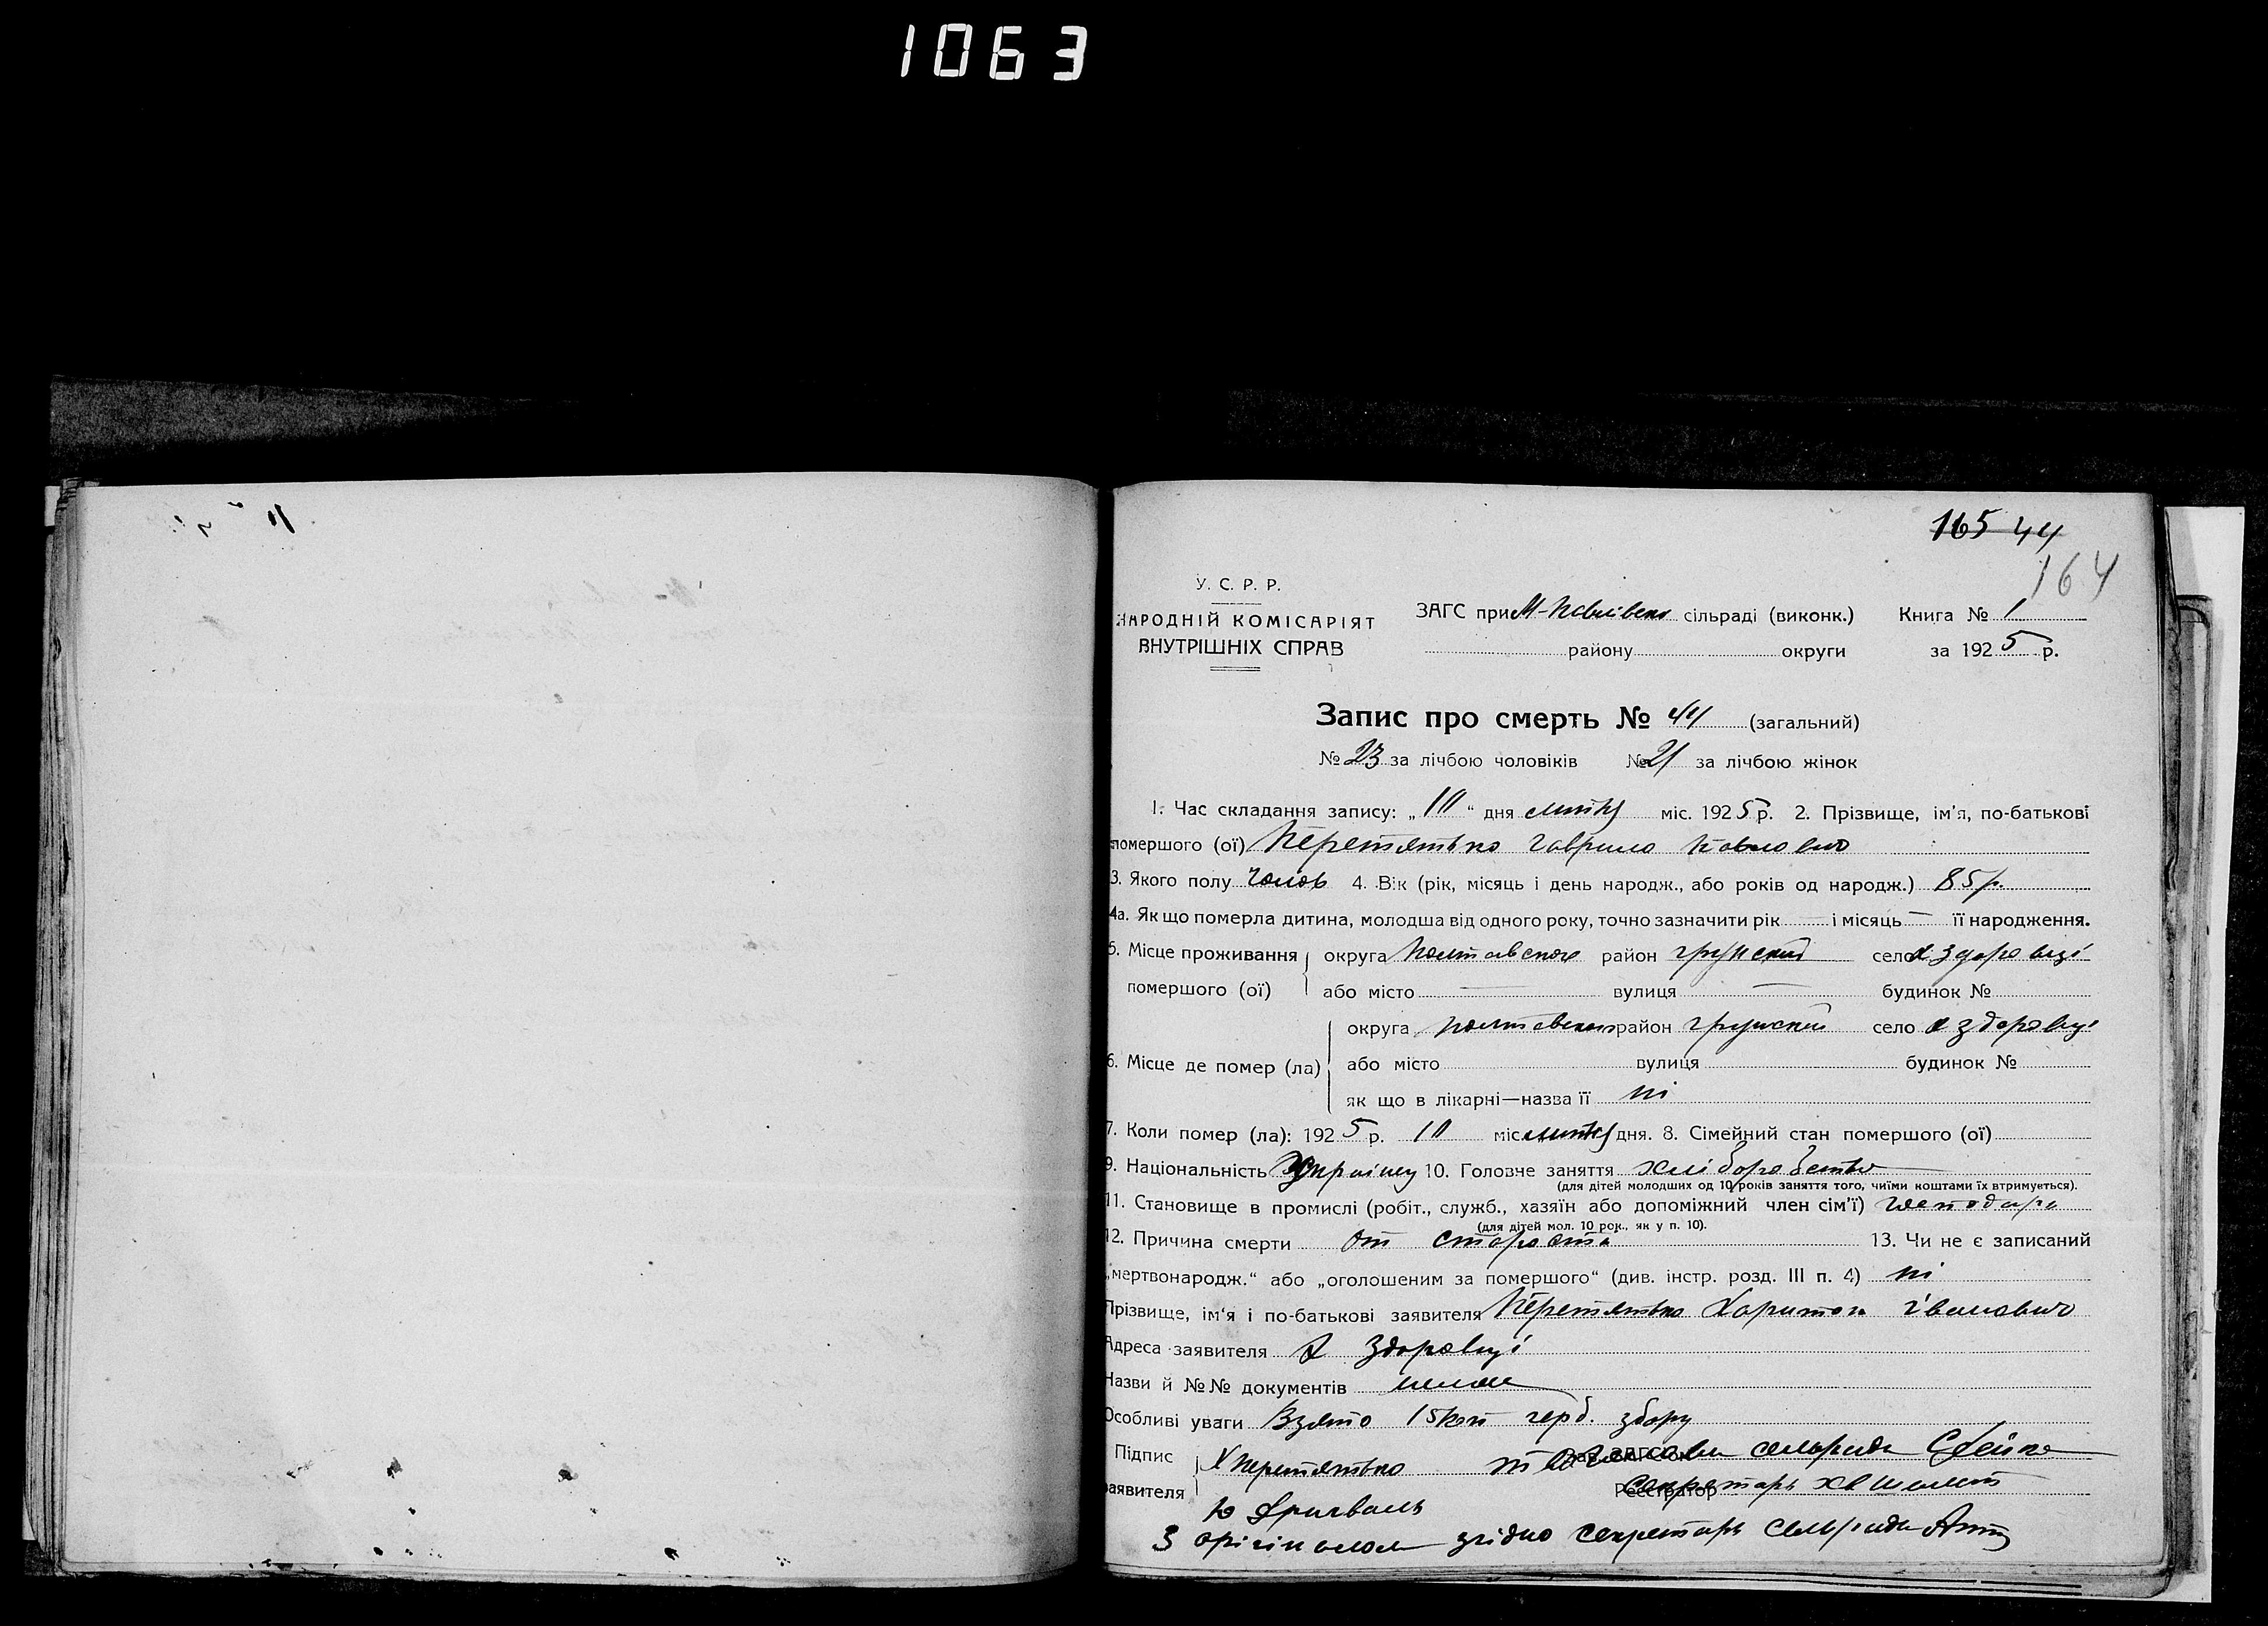 1063
165 44
164
У. С. Р. Р.
НАРОДНІЙ КОМІСАРІЯТ
ВНУТРІШНІХ СПРАВ
ЗАГС при М-Павлівск сільраді (виконк.) Книга № 1
району округи за 1925 р.
Запис про смерть № 44 (загальний)
№ 23 за лічбою чоловіків № 21 за лічбою жінок
1. Час складання запису: „10“ дня лютня міс. 1925 р. 2. Прізвище, ім'я, по-батькові
помершого (ої) Перетятько Гаврило Павлович
3. Якого полу чолов 4. Вік (рік, місяць і день народж., або років од народж.) 85 р.
4а. Як що померла дитина, молодша від одного року, точно зазначити рік — і місяць — її народження.
5. Місце проживання округа Полтавської район грунский село х здоровці
помершого (ої) або місто — вулиця — будинок №
округа полтавської район грунский село х здоровці
6. Місце де помер (ла) або місто вулиця будинок №
як що в лікарні—назва її ні
7. Коли помер (ла): 1925 р. 10 міс лютня дня. 8. Сімейний стан помершого (ої)
9. Національність Україн 10. Головне заняття хліборобство
(для дітей молодших од 10 років заняття того, чиїми коштами їх втримується).
11. Становище в промислі (робіт., служб., хазяїн або допоміжний член сім'ї) господарь
(для дітей мол. 10 рок., як у п. 10).
12. Причина смерти от старости 13. Чи не є записаний
„мертвонародж.“ або „оголошеним за помершого“ (див. інстр. розд. III п. 4) ні
Прізвище, ім'я і по-батькові заявителя Перетятько Харитон Іванович
Адреса заявителя х Здоровці
Назви й №№ документів немає
Особливі уваги Взято 15 коп герб. збору
Підпис Х Перетятько Зав. ЗАГС'ом голови сельради
заявителя Реєстратор секретарь
З орігіналом згідно секретарь Сельради